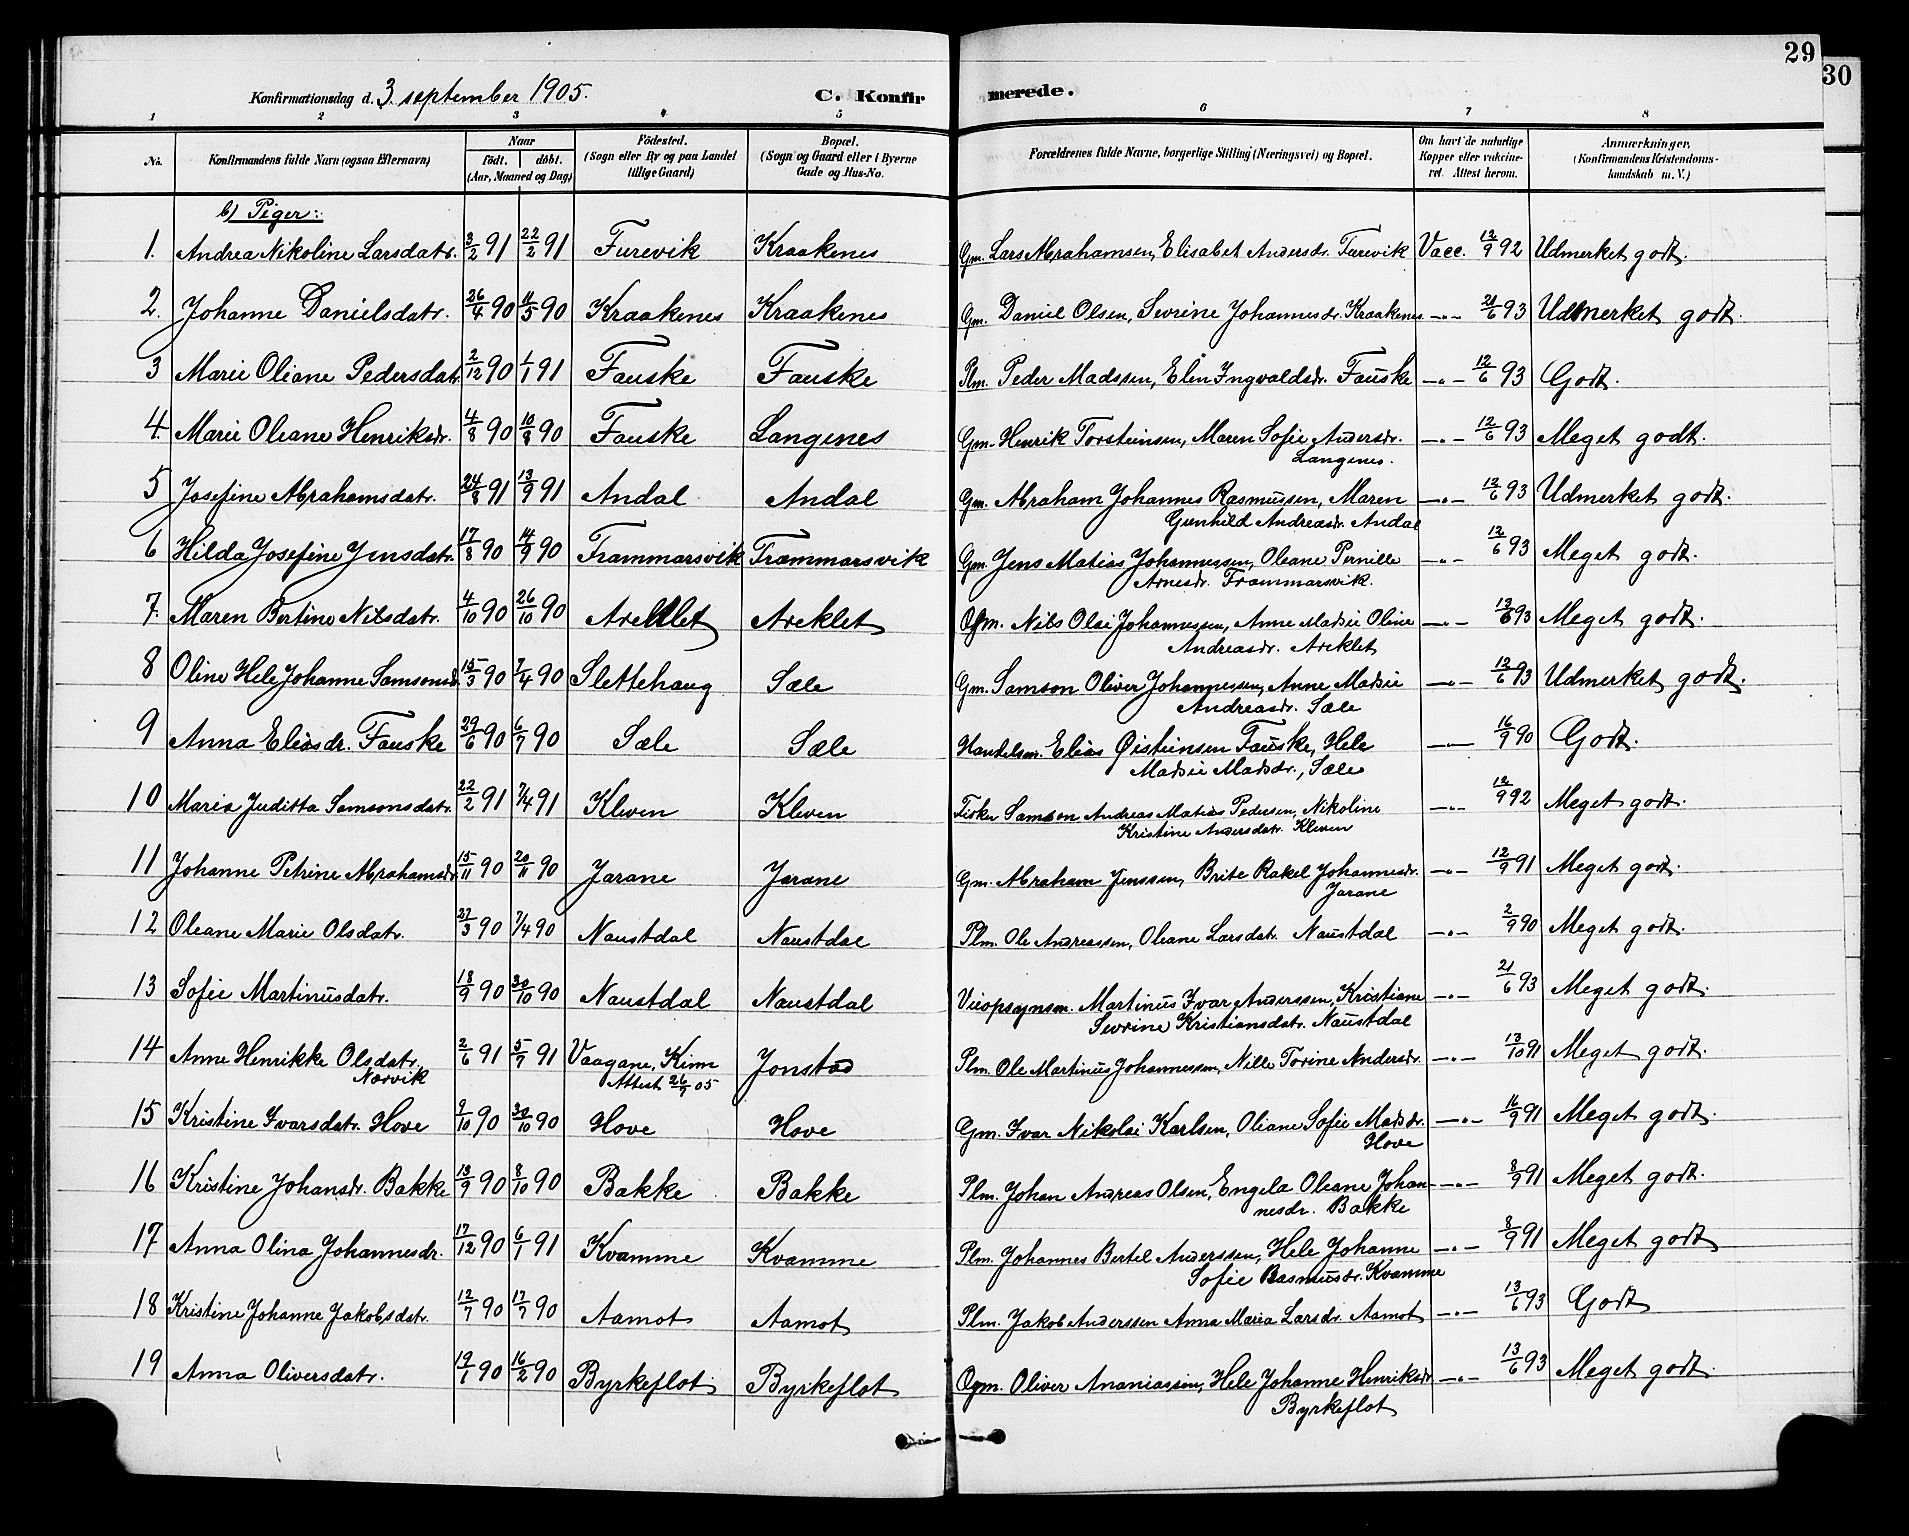 29
30
Konfirmationsdag d. 3 september 1905.
C. Konfirmerede.
1 2 3 4 5 6 7 8
No.
Konfirmandens fulde Navn (ogsaa Efternavn)
Naar
födt. döbt.
(Aar, Maaned og Dag)
Födested.
(Sogn eller By og paa Landet
tillige Gaard)
Bopæl.
(Sogn og Gaard eller i Byerne
Gade og Hus-No.
Forældrenes fulde Navne, borgerlige Stilling (Næringsvei) og Bopæl.
Om havt de naturlige
Kopper eller vakcine-
ret. Attest herom.
Anmærkninger,
(Konfirmandens Kristendoms-
kundskab m. V.)
b) Piger:
1. Andrea Nikoline Larsdatr. 3/2 91 22/2 91 Furevik Kraakenes Gm. Lars Abrahamsen, Elisabet Andersdr. Furevik Vacc. 12/9 92 Udmerket godt.
2. Johanne Danielsdatr. 26/4 90 11/5 90 Kraakenes Kraakenes Gm. Daniel Olsen, Sevrine Johannesdr. Kraakenes —"— 21/6 93 Udmerket godt.
3 Marie Oliane Pedersdatr. 2/12 90 1/1 91 Fauske Fauske Plm. Peder Madssen, Elen Ingvaldsdr. Fauske —"— 12/6 93 Godt.
4. Marie Oleane Henriksdr. 4/8 90 10/8 90 Fauske Langenes Gm. Henrik Torsteinsen, Maren Sofie Andersdr. —"— 12/6 93 Meget godt.
Langenes.
5 Josefine Abrahamsdatr. 24/8 91 13/9 91 Andal Andal Gm. Abraham Johannes Rasmussen, Maren —"— 12/6 93 Udmerket godt.
Gunhild Andreasdr. Andal
6 Hilda Josefine Jensdatr. 17/8 90 14/9 90 Frammarsvik Frammarsvik Gm. Jens Matias Johannessen, Oleane Pernille —"— 12/6 93 Meget godt.
Arnesdr. Frammarsvik.
7. Maren Bertine Nilsdatr. 4/10 90 26/10 90 Areklet Areklet Gm. Nils Olai Johannessen, Anne Matsie Oline —"— 13/6 93 Meget godt.
Andreasdr. Areklet
8 Oline Hele Johanne Samsonsd. 15/3 90 7/4 90 Slettehaug Sæle Gm. Samson Oliver Johannessen, Anne Matsie —"— 12/6 93 Udmerket godt.
Andreasdr. Sæle
9 Anna Eliasdr. Fauske 29/6 90 6/7 90 Sæle Sæle Handelsm. Elias Øisteinsen Fauske, Hele —"— 16/9 90 Godt.
Matsie Madsdr., Sæle
10 Maria Juditta Samsonsdatr. 22/2 91 7/4 91 Kleven Kleven Fisker Samson Andreas Matias Pedersen, Nikoline —"— 12/9 92 Meget godt.
Kristine Andersdatr. Kleven
11 Johanne Petrine Abrahamsdr. 15/11 90 20/11 90 Jarane Jarane Gm. Abraham Jenssen, Brite Rakel Johannesdr. —"— 12/9 91 Meget godt.
Jarane
12 Oleane Marie Olsdatr. 27/3 90 7/4 90 Naustdal Naustdal Plm. Ole Andreassen, Oleane Larsdatr. Naustdal —"— 2/9 90 Meget godt.
13 Sofie Martinusdatr. 18/9 90 30/10 90 Naustdal Naustdal Veiopsynsm. Martinus Ivar Anderssen, Kristiane —"— 21/6 93 Meget godt.
Sevrine Kristiansdatr. Naustdal
14 Anne Henrikke Olsdatr. 2/6 91 5/7 91 Vaagane, Kinn Jonstad Plm. Ole Martinus Johannessen, Nille Torine Andersdr. —"— 13/10 91 Meget godt.
Norvik Attest 26/9 05
15 Kristine Ivarsdatr. Hove 9/10 90 30/10 90 Hove Hove Gm. Ivar Nikolai Karlsen, Oliane Sofie Madsdr. —"— 16/9 91 Meget godt.
Hove
16 Kristine Johansdr. Bakke 13/9 90 8/10 90 Bakke Bakke Plm. Johan Andreas Olsen, Engela Oleane Johan- —"— 8/9 91 Meget godt.
nesdr. Bakke
17 Anna Olina Johannesdr. 17/12 90 6/1 91 Kvamme Kvamme Plm. Johannes Bertel Anderssen, Hele Johanne —"— 8/9 91 Meget godt
Sofie Rasmusdr. Kvamme
18 Kristine Johanne Jakobsdatr. 12/7 90 17/7 90 Aamot Aamot Plm. Jakob Anderssen Anna Maria Larsdr. Aamot —"— 13/6 93 Godt
19 Anna Oliversdatr. 19/1 90 16/2 90 Byrkeflot Byrkeflot Gm. Oliver Ananiassen, Hele Johanne Henriksdr. —"— 13/6 93 Meget godt.
Byrkeflot